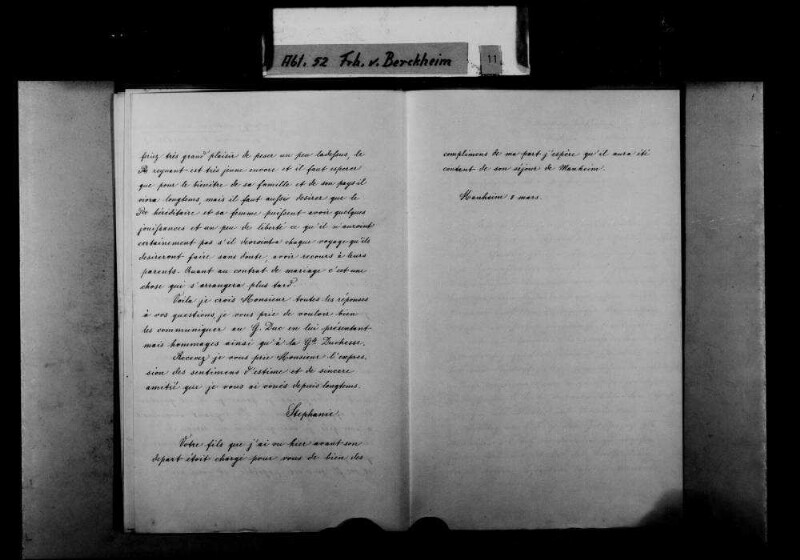 Abt. 52 Frh. v. Berckheim
11
friez très grand plaisir de peser un peu ladessus, le
Pce regnant est très jeune encore et il faut esperer
que pour le bienêtre de sa famille et de son pays il
vivra longtems, mais il faut aussi desirer que le
Pce héréditaire et sa femme puissent avoir quelques
jouissances et un peu de liberté ce qu'il n'auroient
certainement pas s'il devroient a chaque voyage qu'ils
desireront faire sans doute, avoir recours à leurs
parents. Quant au contrat de mariage c'est une
chose qui s'arrangera plus tard
Voila je crois Monsieur toutes les réponses
à vos questions, je vous prie de vouloir bien
les communiquer au G. Duc en lui présentant
mais hommages ainsi qu'à la Gde Duchesse.
Recevez je vous prie Monsieur l'expres
sion des sentimens d'estime et de sincere
amitié que je vous ai voués depuis longtems.
Stephanie.
Votre fils que j'ai vu hier avant son
depart étoit chargé pour vous de bien des
complimens de ma part j'espère qu'il aura été
content de son séjour de Manheim.
Manheim 8 mars.